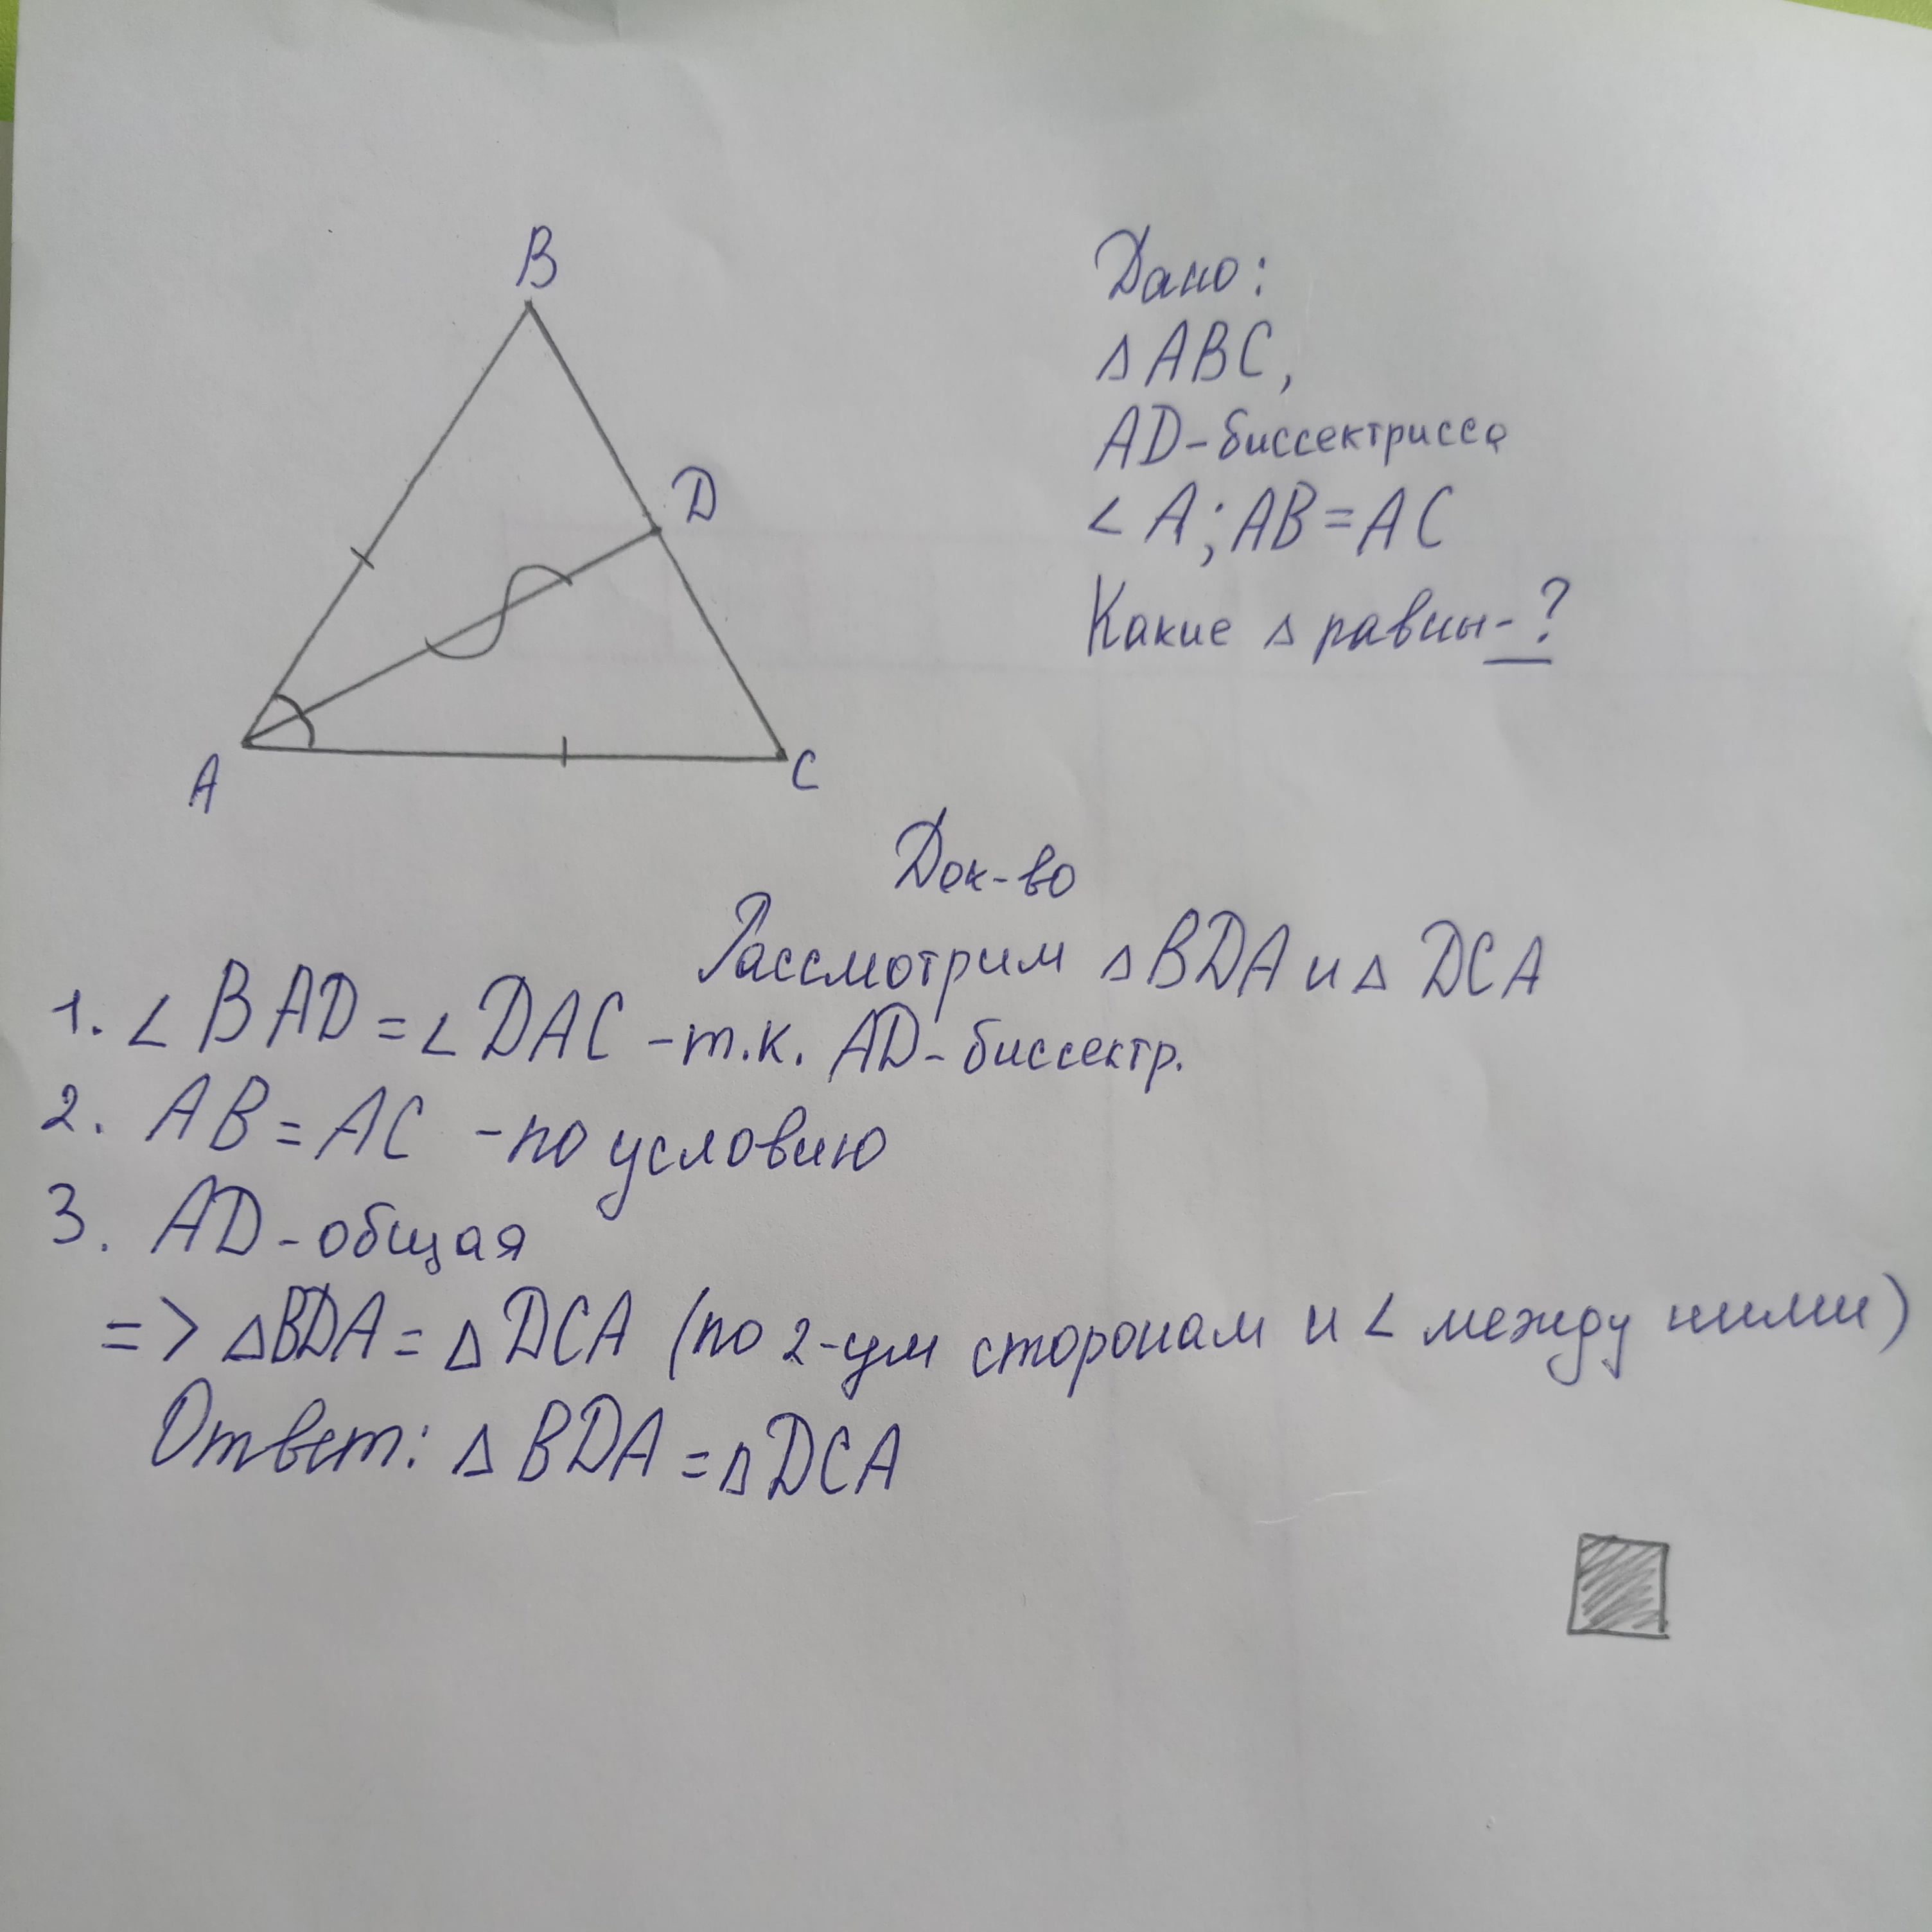 B
D
A
C
Дано:
△ABC,
AD-биссектрисса
∠A; AB=AC
Какие △ равны-?
Док-во
Рассмотрим △BDA и △DCA
1. ∠BAD=∠DAC -т.к. AD-биссектр.
2. AB=AC -по условию
3. AD-общая
=> △BDA=△DCA (по 2-ум сторонам и ∠ между ними)
Ответ: △BDA=△DCA